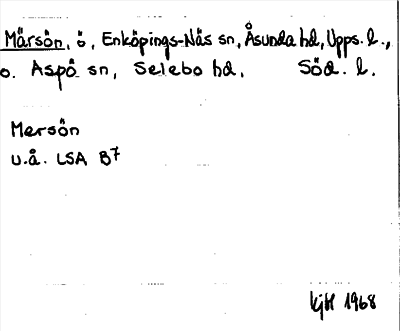 Märsön, ö, Enköpings-Näs sn, Åsunda hd, Upps. l.,
o. Aspö sn, Selebo hd, Söd. l.
Mersön
u.å. LSA B7
KjH 1968